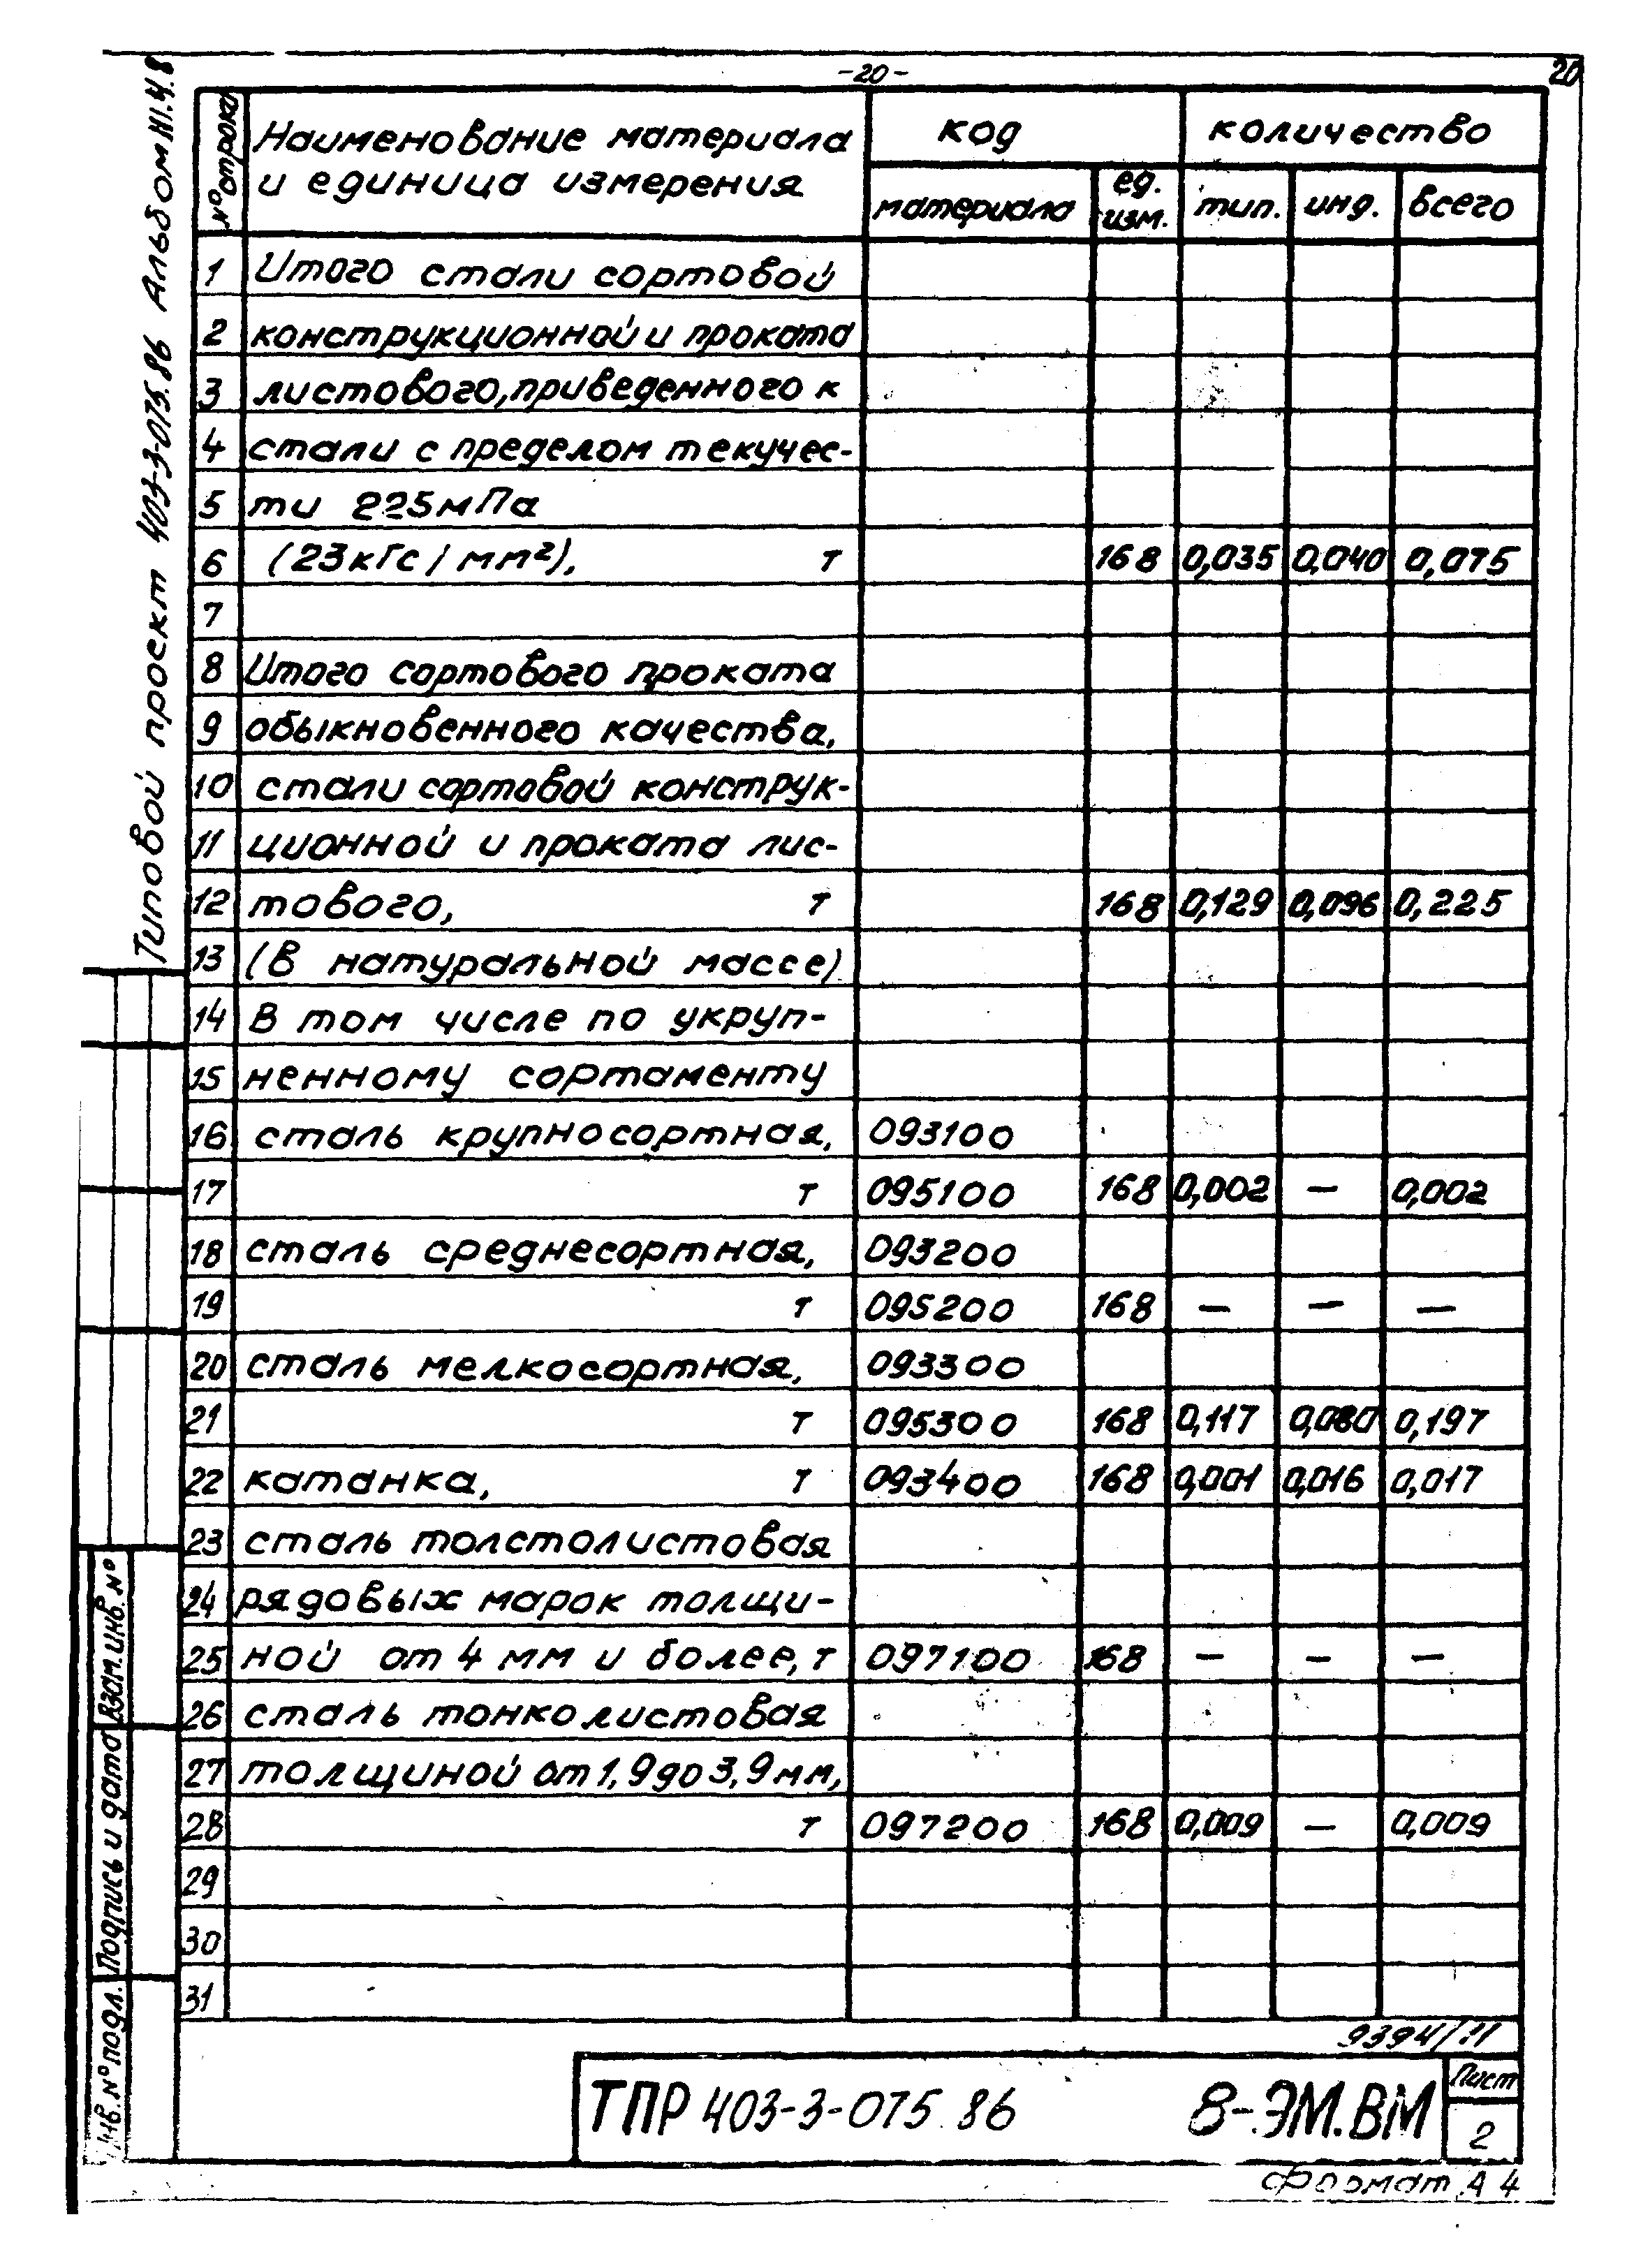 -20-
20
№ строки
Наименование материала и единица измерения
код
количество
материала
ед. изм.
тип.
инд.
всего
1 Итого стали сортовой
2 конструкционной и проката
3 листового, приведенного к
4 стали с пределом текучес-
5 ти 225мПа
6 (23кГс/мм²), т 168 0,035 0,040 0,075
7
8 Итого сортового проката
9 обыкновенного качества,
10 стали сортовой конструк-
11 ционной и проката лис-
12 тового, т 168 0,129 0,096 0,225
13 (В натуральной массе)
14 В том числе по укруп-
15 ненному сортаменту
16 сталь крупносортная, 093100
17 т 095100 168 0,002 — 0,002
18 сталь среднесортная, 093200
19 т 095200 168 — — —
20 сталь мелкосортная, 093300
21 т 095300 168 0,117 0,080 0,197
22 катанка, т 093400 168 0,001 0,016 0,017
23 сталь толстолистовая
24 рядовых марок толщи-
25 ной от 4 мм и более, т 097100 168 — — —
26 сталь тонколистовая
27 толщиной от 1,9 до 3,9 мм,
28 т 097200 168 0,009 — 0,009
29
30
31
Типовой проект 403-3-075.86 Альбом
Взам. инв. №
Подпись и дата
Инв. № подл.
9394/11
ТПР 403-3-075.86
8-ЭМ.ВМ
Лист
2
Формат А4